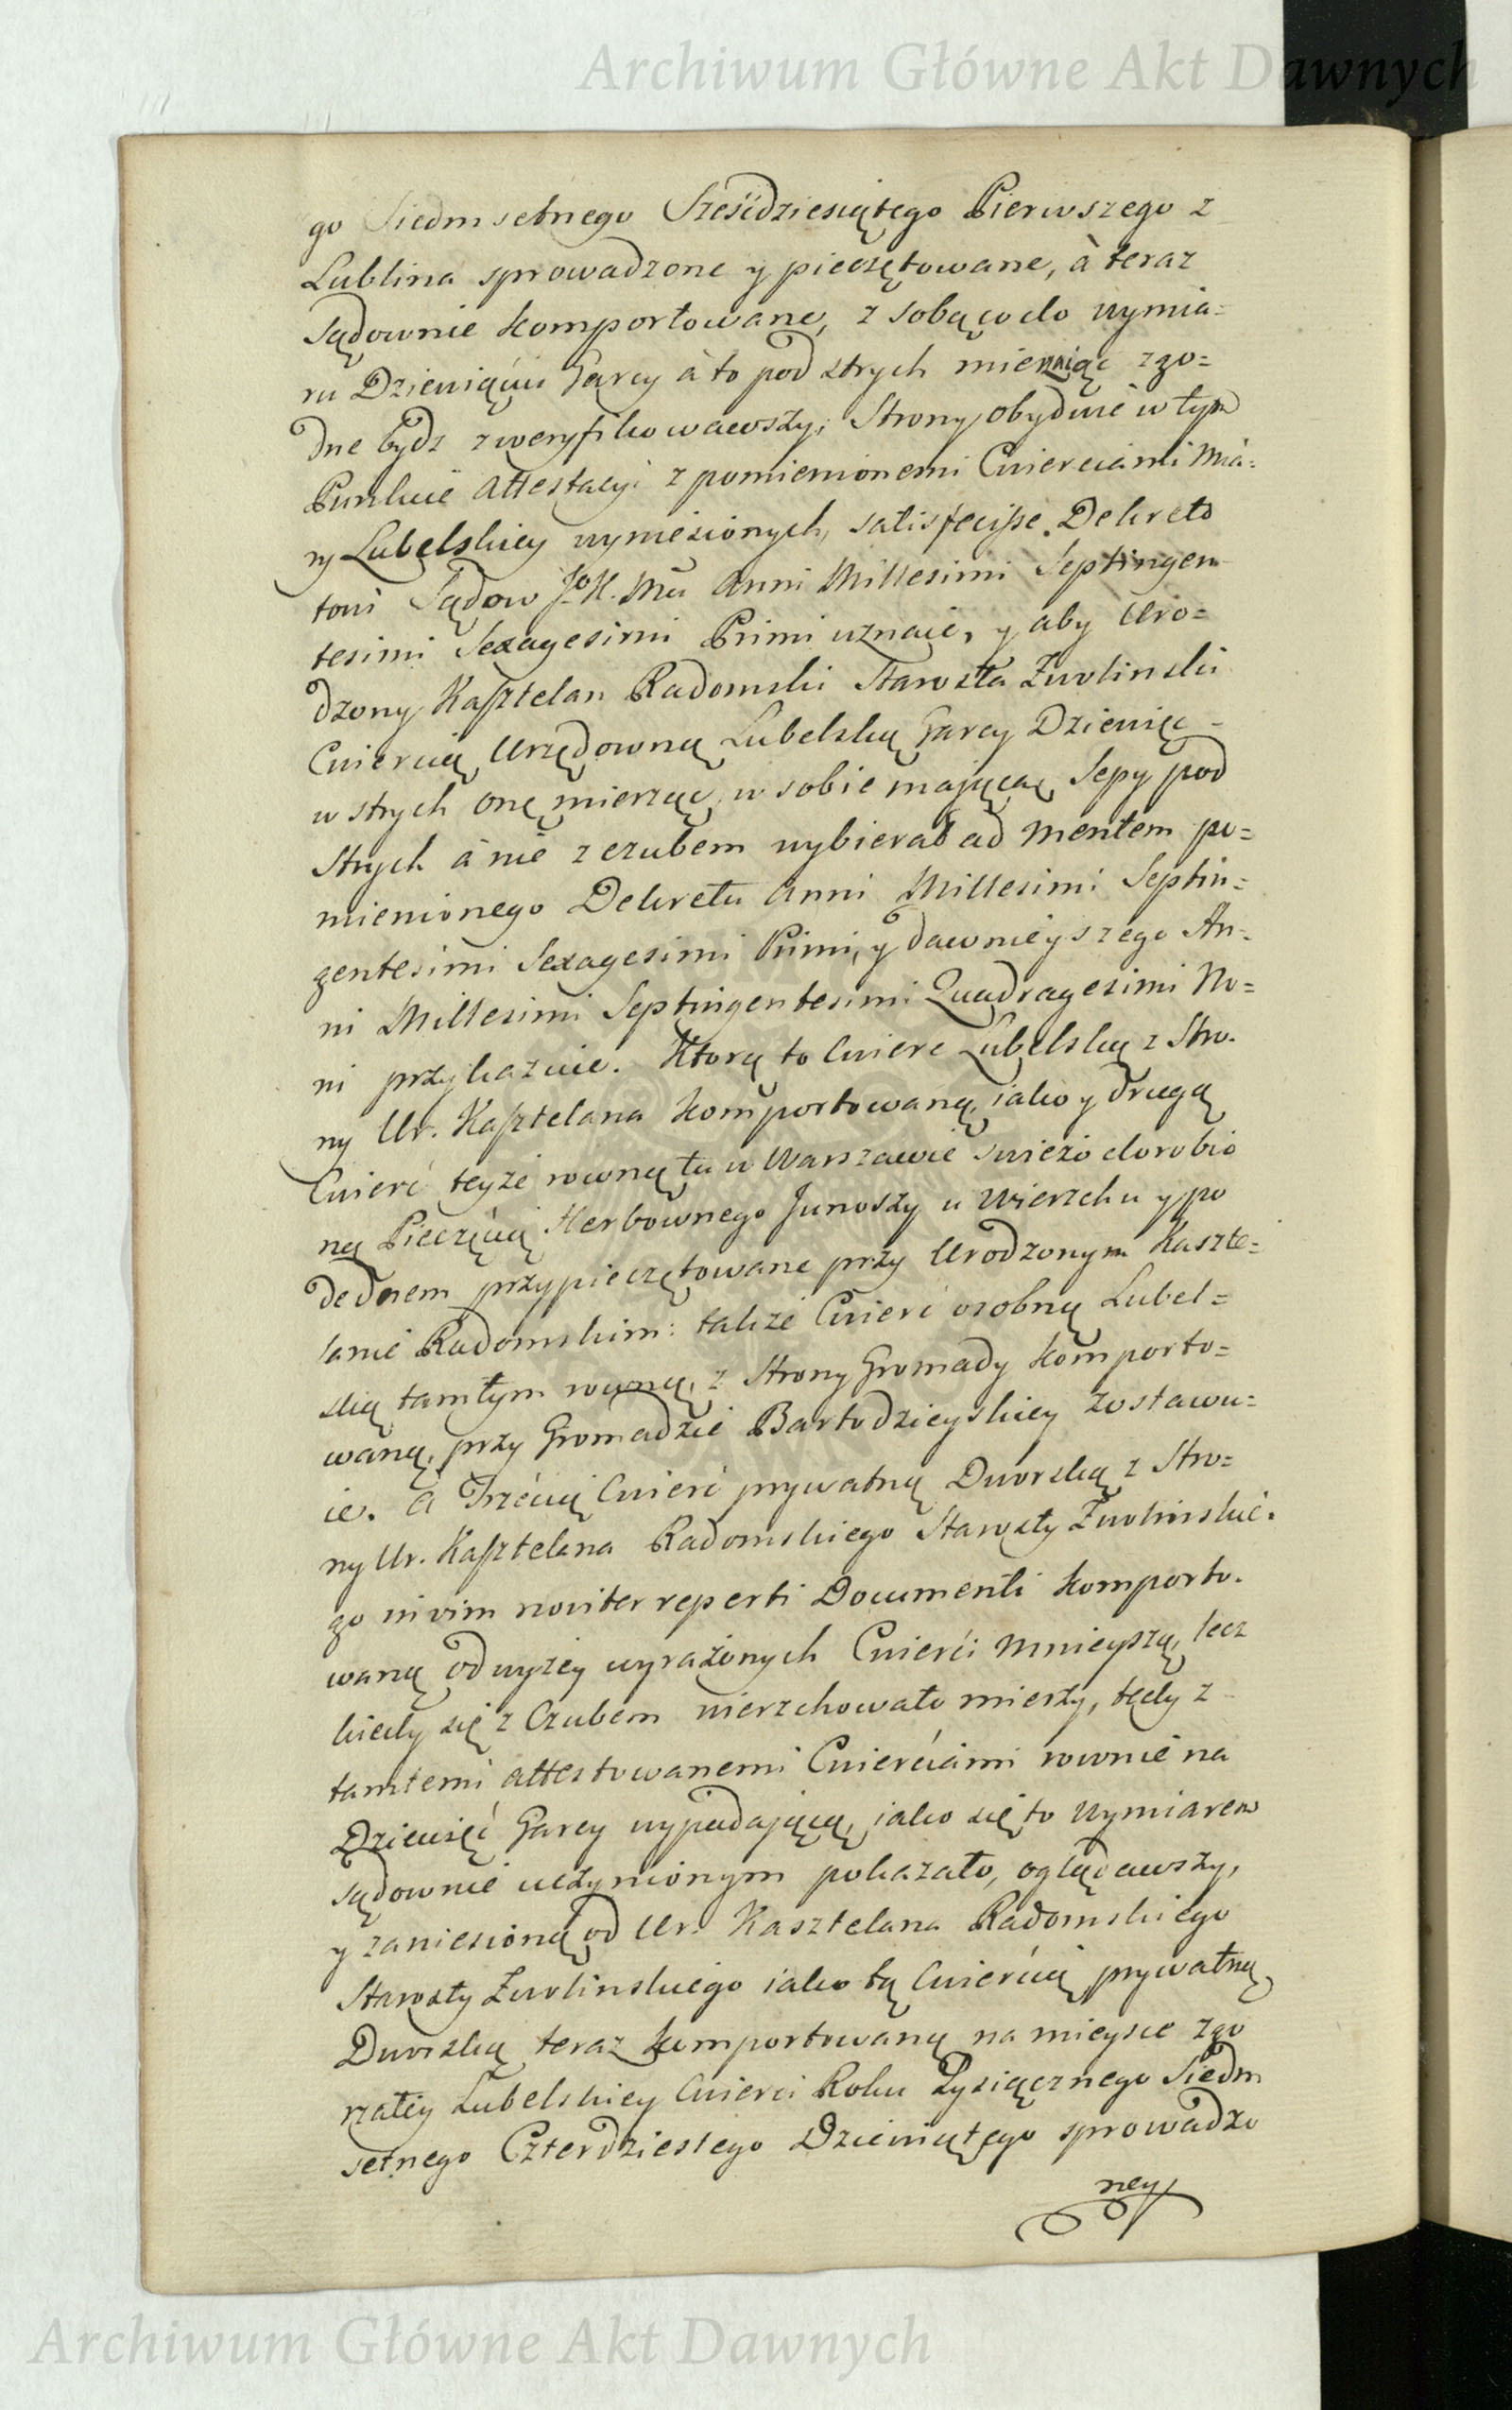 Archiwum Główne Akt Dawnych
go Siedmsetnego Sześćdziesiątego Pierwszego z
Lublina sprowadzone y pieczętowane, à teraz
Sądownie komportowane, z sobą co do wymia=
ru Dziewiąciu Garcy à to pod strych mierząc zgo=
dne bydz zweryfikowawszy, Strony obydwie w tym
Punkcie Attestacyi z pomienionemi Cwierciami Mia=
ry Lubelskiey wyniesionych, satisfecisse Dekreto
towi Sądow J. K. Mci Anni Millesimi Septingen
tesimi Sexagesimi Primi uznaie, y aby Uro=
dzony Kasztelan Radomski Starosta Zwolinski
Cwiercią Urzędowną Lubelską Garcy Dziewięc
w strych onę mierząc, w sobie maiącą, Sepy pod
Strych à nie z czubem wybierał ad mentem po=
mienionego Dekretu Anni Millesimi Septin=
gentesimi Sexagesimi Primi, y dawnieyszego An=
ni Millesimi Septingentesimi Quadragesimi No=
ni przykazuie. Ktorą to Cwierc Lubelską z Stro=
ny Ur. Kasztelana komportowaną, iako y drugą
Cwierć teyże rowną tu w Warszawie swieżo dorobio
ną Pieczęcią Herbownego Junoszy u wierzchu y po
de dnem przypieczętowane przy Urodzonym Kaszte=
lanie Radomskim: także Cwierć osobną Lubel=
ską tamtym rowną, z Strony Gromady komporto=
waną, przy Gromadzie Bartodzieyskiey zostawu=
ie. A Trzécią Cwierć prywatną Dworską z Stro=
ny Ur. Kasztelana Radomskiego Starosty Zwolinskie=
go in vim noviter reperti Documenti komporto=
waną od wyżey wyrażonych Cwierći mnieyszą, lecz
kiedy się z Czubem wierzchowato mierzy, tedy z
tamtemi attestowanemi Cwierciami rownie na
Dziewięć Garcy wypadaiącą, iako się to wymiarem
sądownie uczynionym pokazało, oglądawszy,
y zaniesioną od Ur. Kasztelana Radomskiego
Starosty Zwolinskiego iako tą Cwiercią prywatną
Dworską teraz komportowaną na mieysce zgo
rzałey Lubelskiey Cwierci Roku Tysiącznego Siedm
setnego Czterdziestego Dziewiątego sprowadzo
ney
Archiwum Główne Akt Dawnych